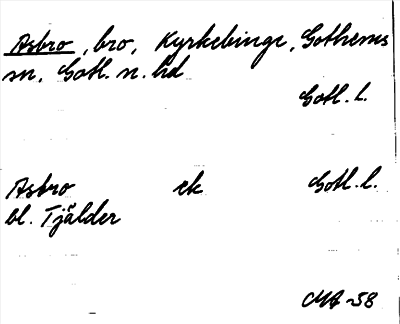 Asbro, bro, Kyrkebinge, Gothems
sn, Gotl. n. hd
Gotl. l.
Asbro ek Gotl. l.
bl. Tjälder
CMA -58